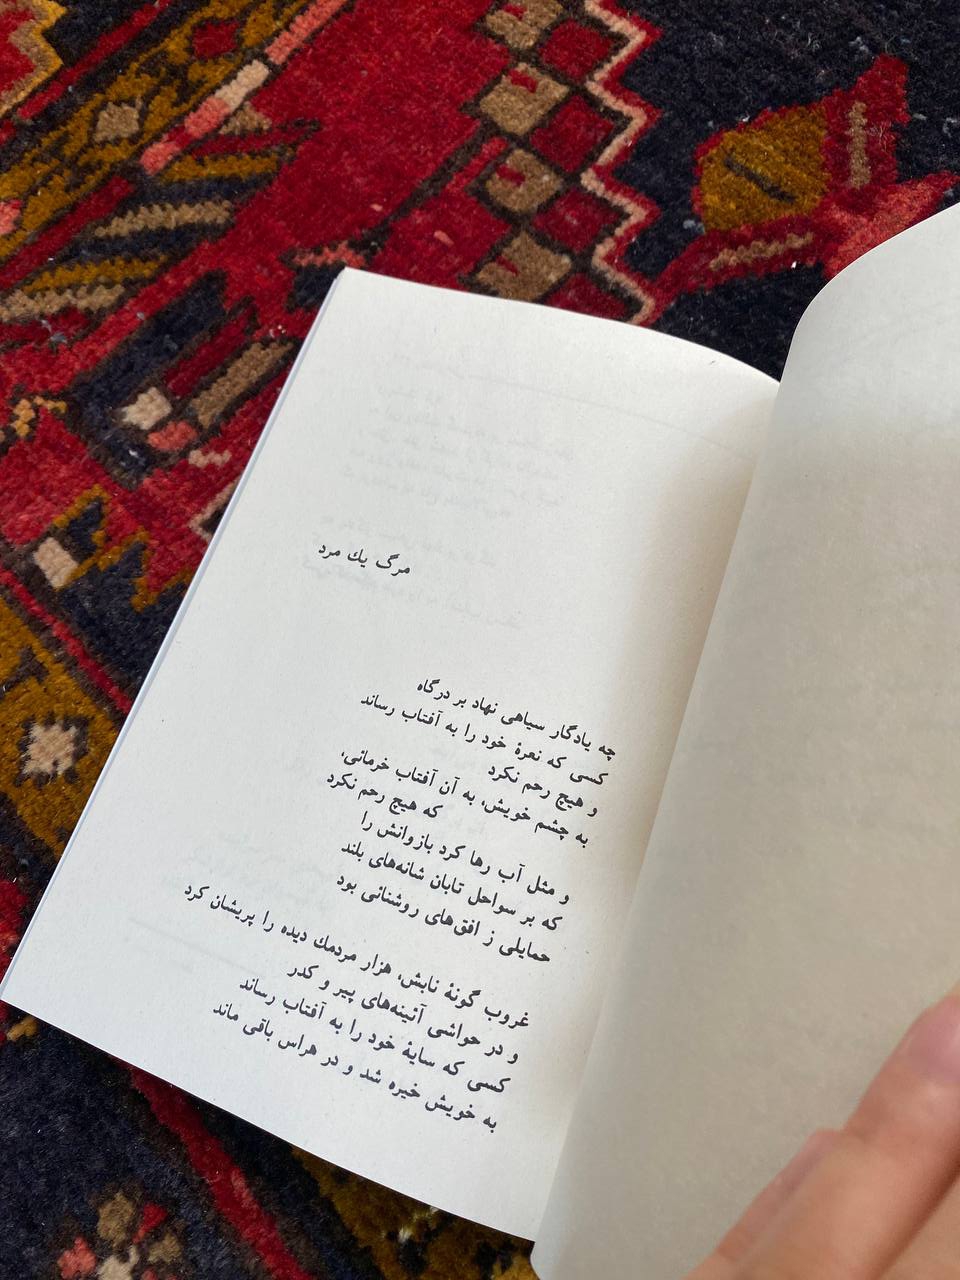 مرگ يك مرد
چه يادگار سياهى نهاد بر درگاه
كسى كه نعرهٔ خود را به آفتاب رساند
و هيچ رحم نكرد
به چشم خويش، به آن آفتاب خرمائى،
كه هيچ رحم نكرد
و مثل آب رها كرد بازوانش را
كه بر سواحل تابان شانه‌هاى بلند
حمايلى ز افق‌هاى روشنائى بود
غروب گونهٔ نابش، هزار مردمك ديده را پريشان كرد
و در حواشى آئينه‌هاى پير و كدر
كسى كه سايهٔ خود را به آفتاب رساند
به خويش خيره شد و در هراس باقى ماند